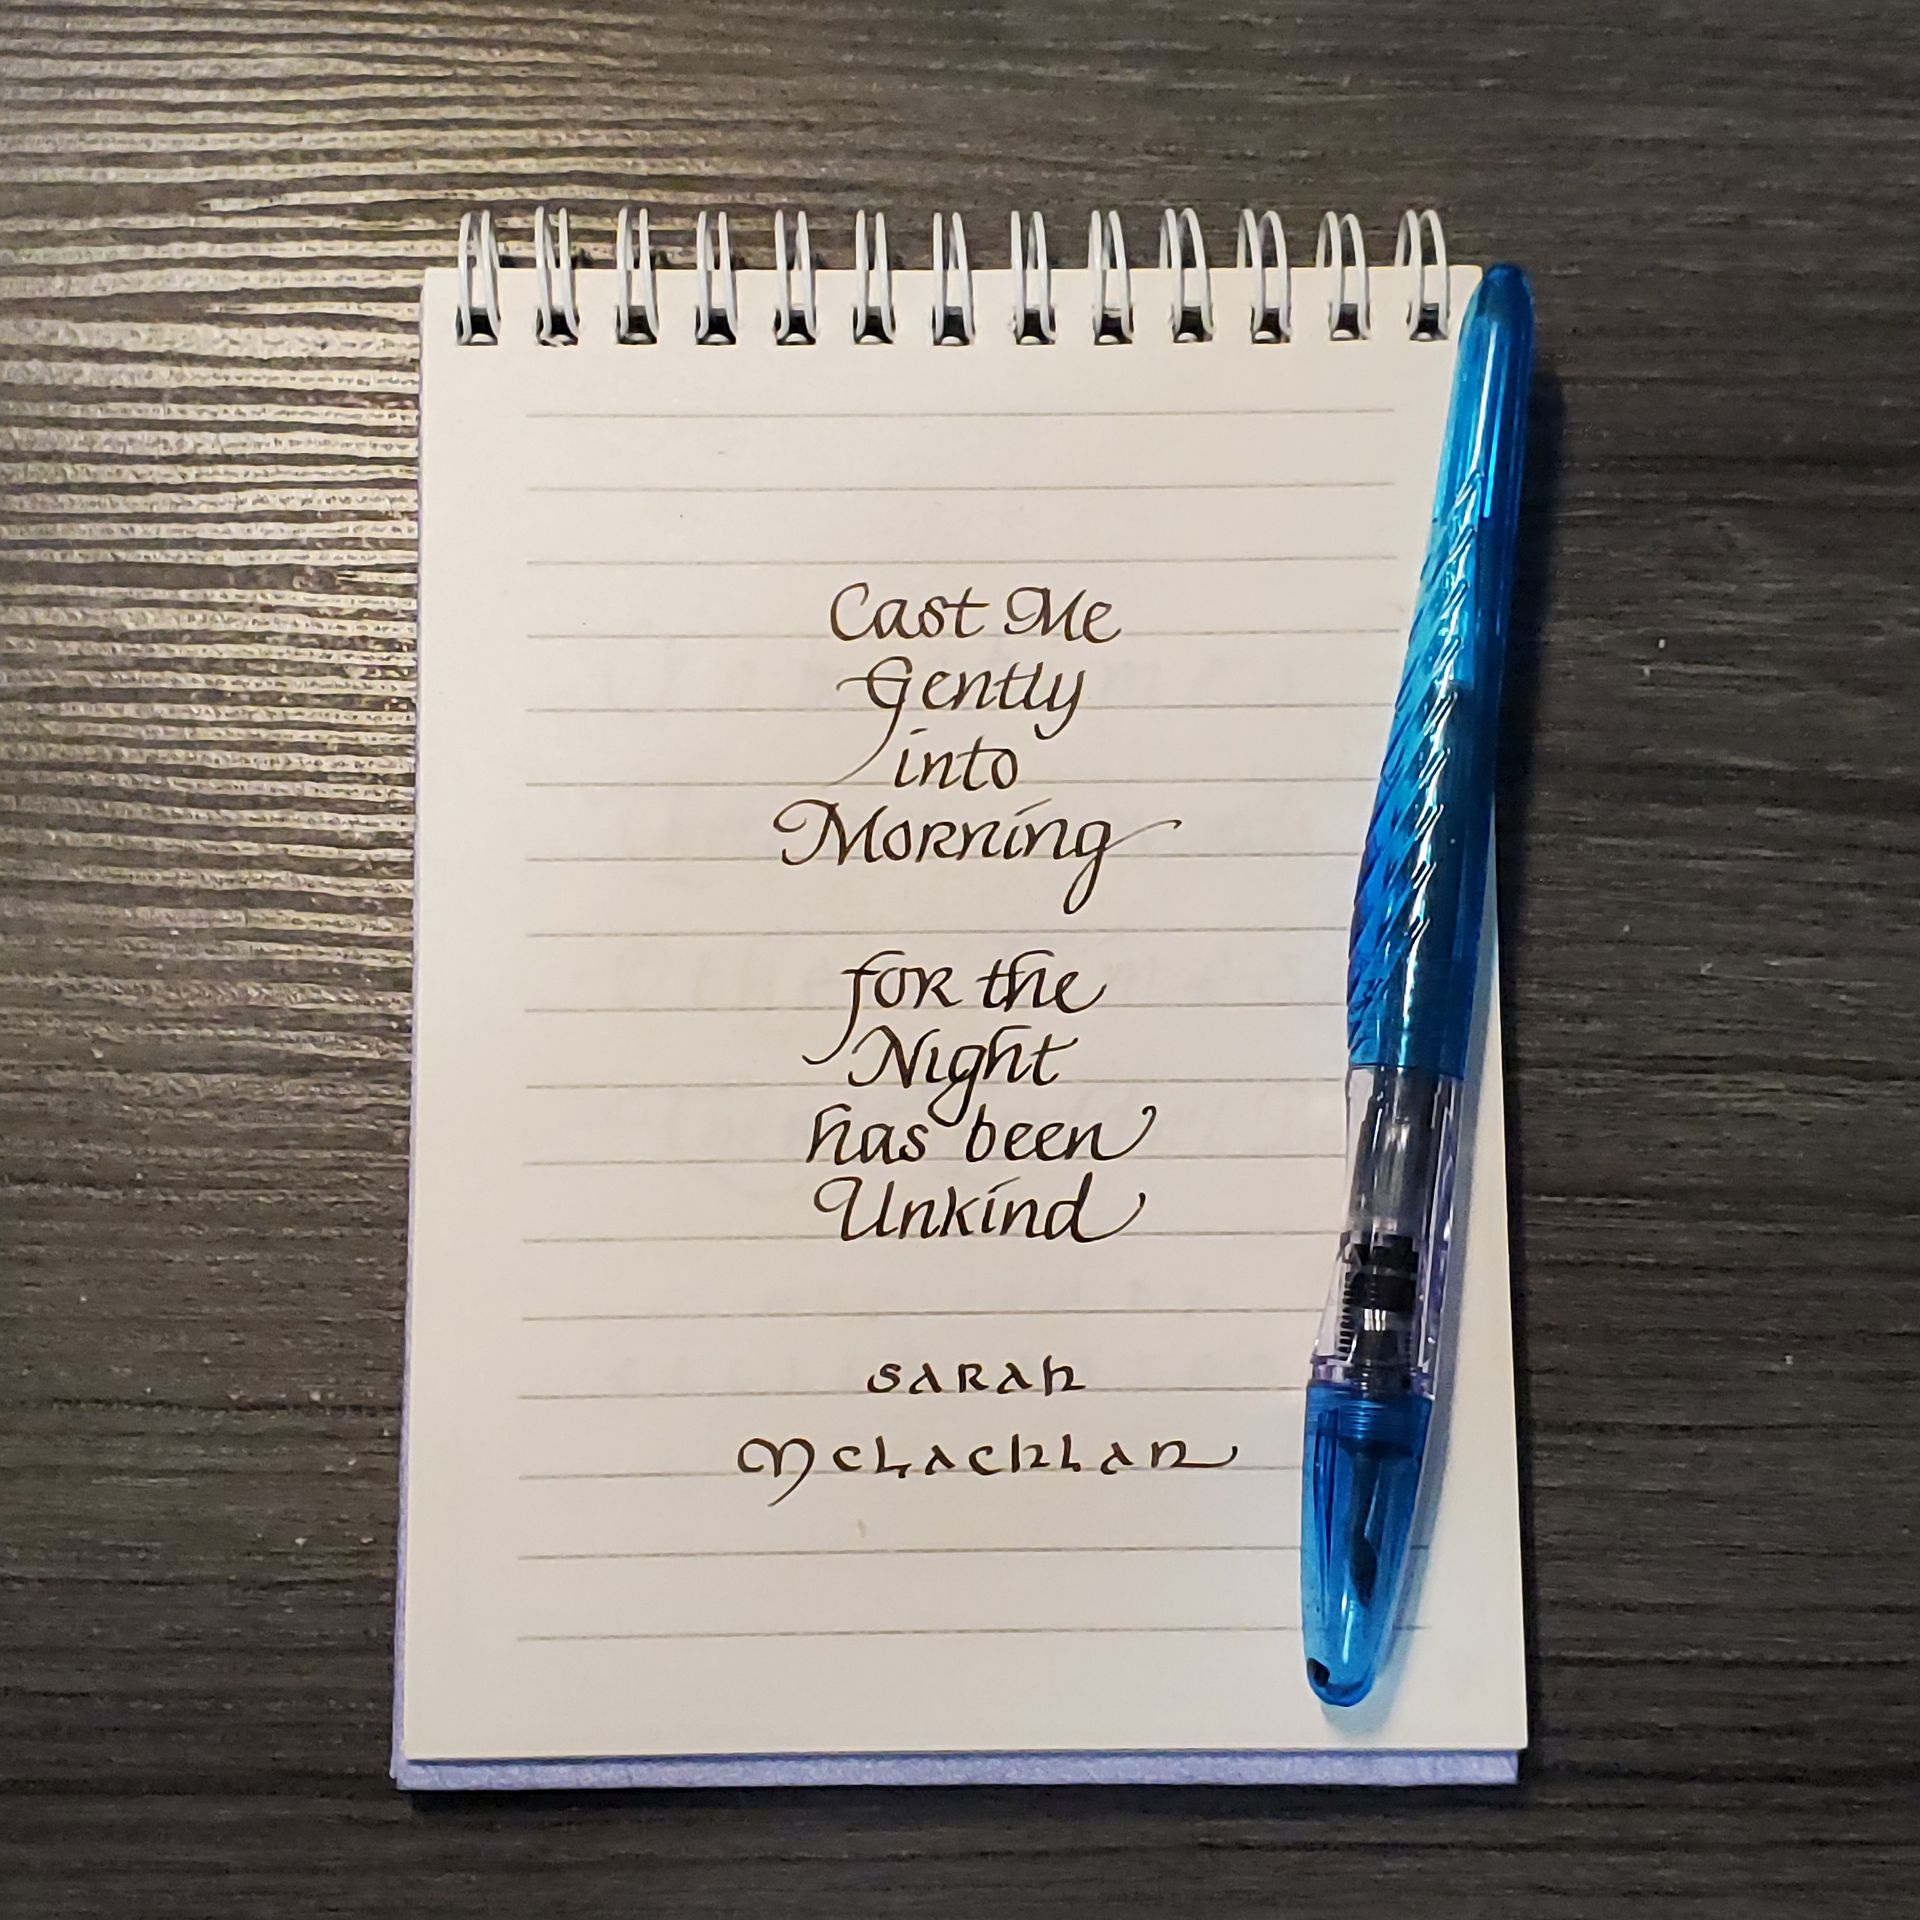 Cast Me
Gently
into
Morning
for the
Night
has been
Unkind
Sarah
McLachlan